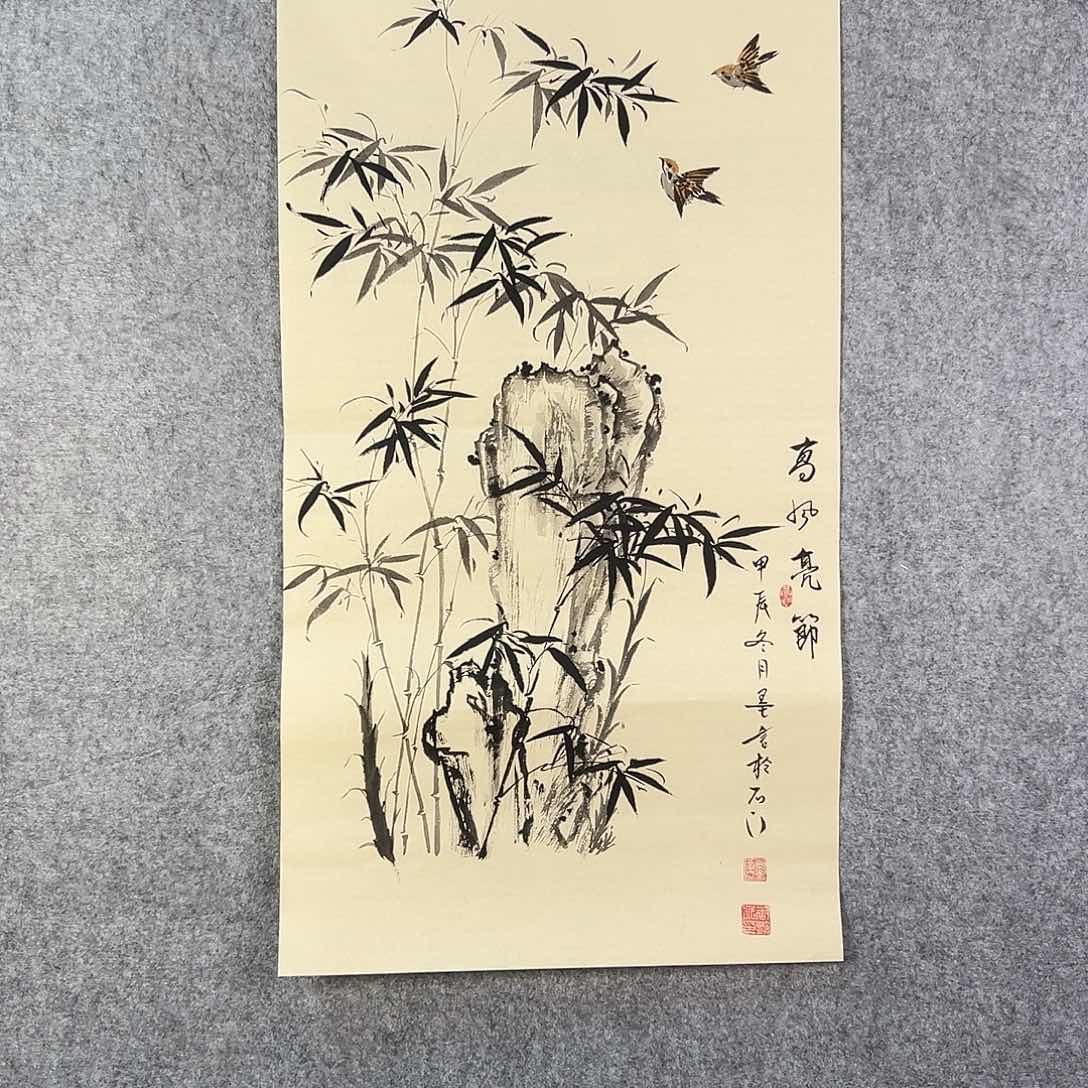 高风亮節
甲辰冬月墨言於石门